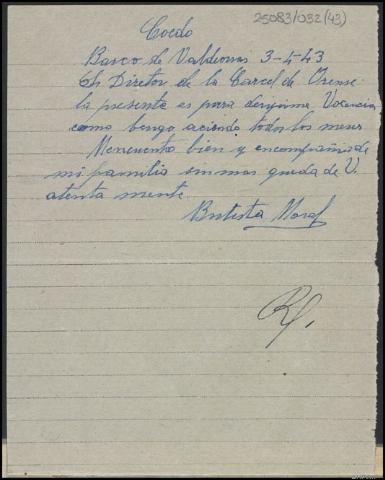 25083/032(43)
Coedo
Barco de Valdeorras 3-4-43
Sr Diretor de la Carcel de Orense
la presente es para
como bengo aciendo todos los meses
Mencuentro bien y encompañia de
mi familia sin mas queda de V.
atenta mente
Butista Moral